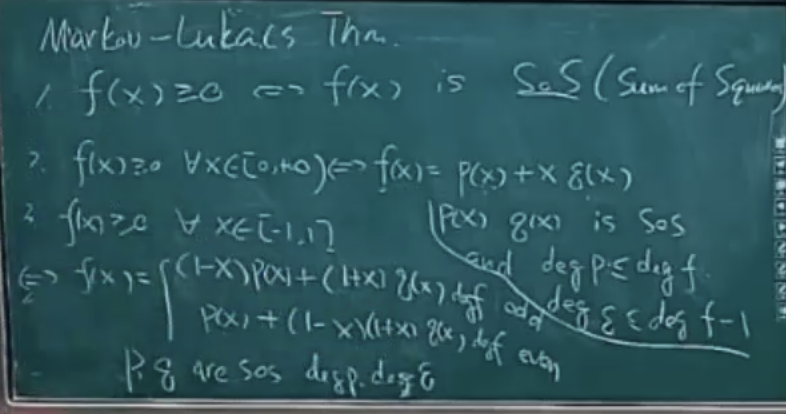 Markov-Lukacs Thm.
1. f(x)≥0 ⇔ f(x) is SoS (Sum of Square
2. f(x)≥0 ∀x∈[0,+∞) ⇔ f(x)= p(x)+x q(x)
p(x) q(x) is SoS
and deg p ≤ deg f.
deg q ≤ deg f-1
3. f(x)≥0 ∀ x∈[-1,1]
⇔ f(x)= { (1-x)p(x)+(1+x) q(x), deg f odd
p(x)+(1-x)(1+x) q(x), deg f even
p, q are sos deg p, deg q